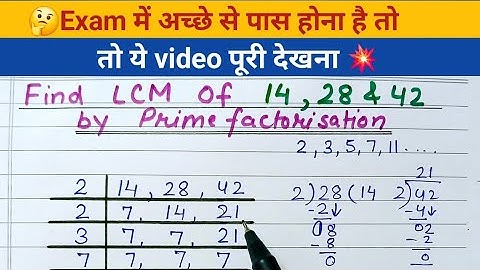 🤔Exam में अच्छे से पास होना है तो
तो ये video पूरी देखना 💥
Find LCM Of 14, 28 & 42
by Prime factorisation
2, 3, 5, 7, 11 ....
2 | 14, 28, 42
2 | 7, 14, 21
3 | 7, 7, 21
7 | 7, 7, 7
2)28(14
-2↓
08
-8
0
21
2)42
-4↓
02
-2
0